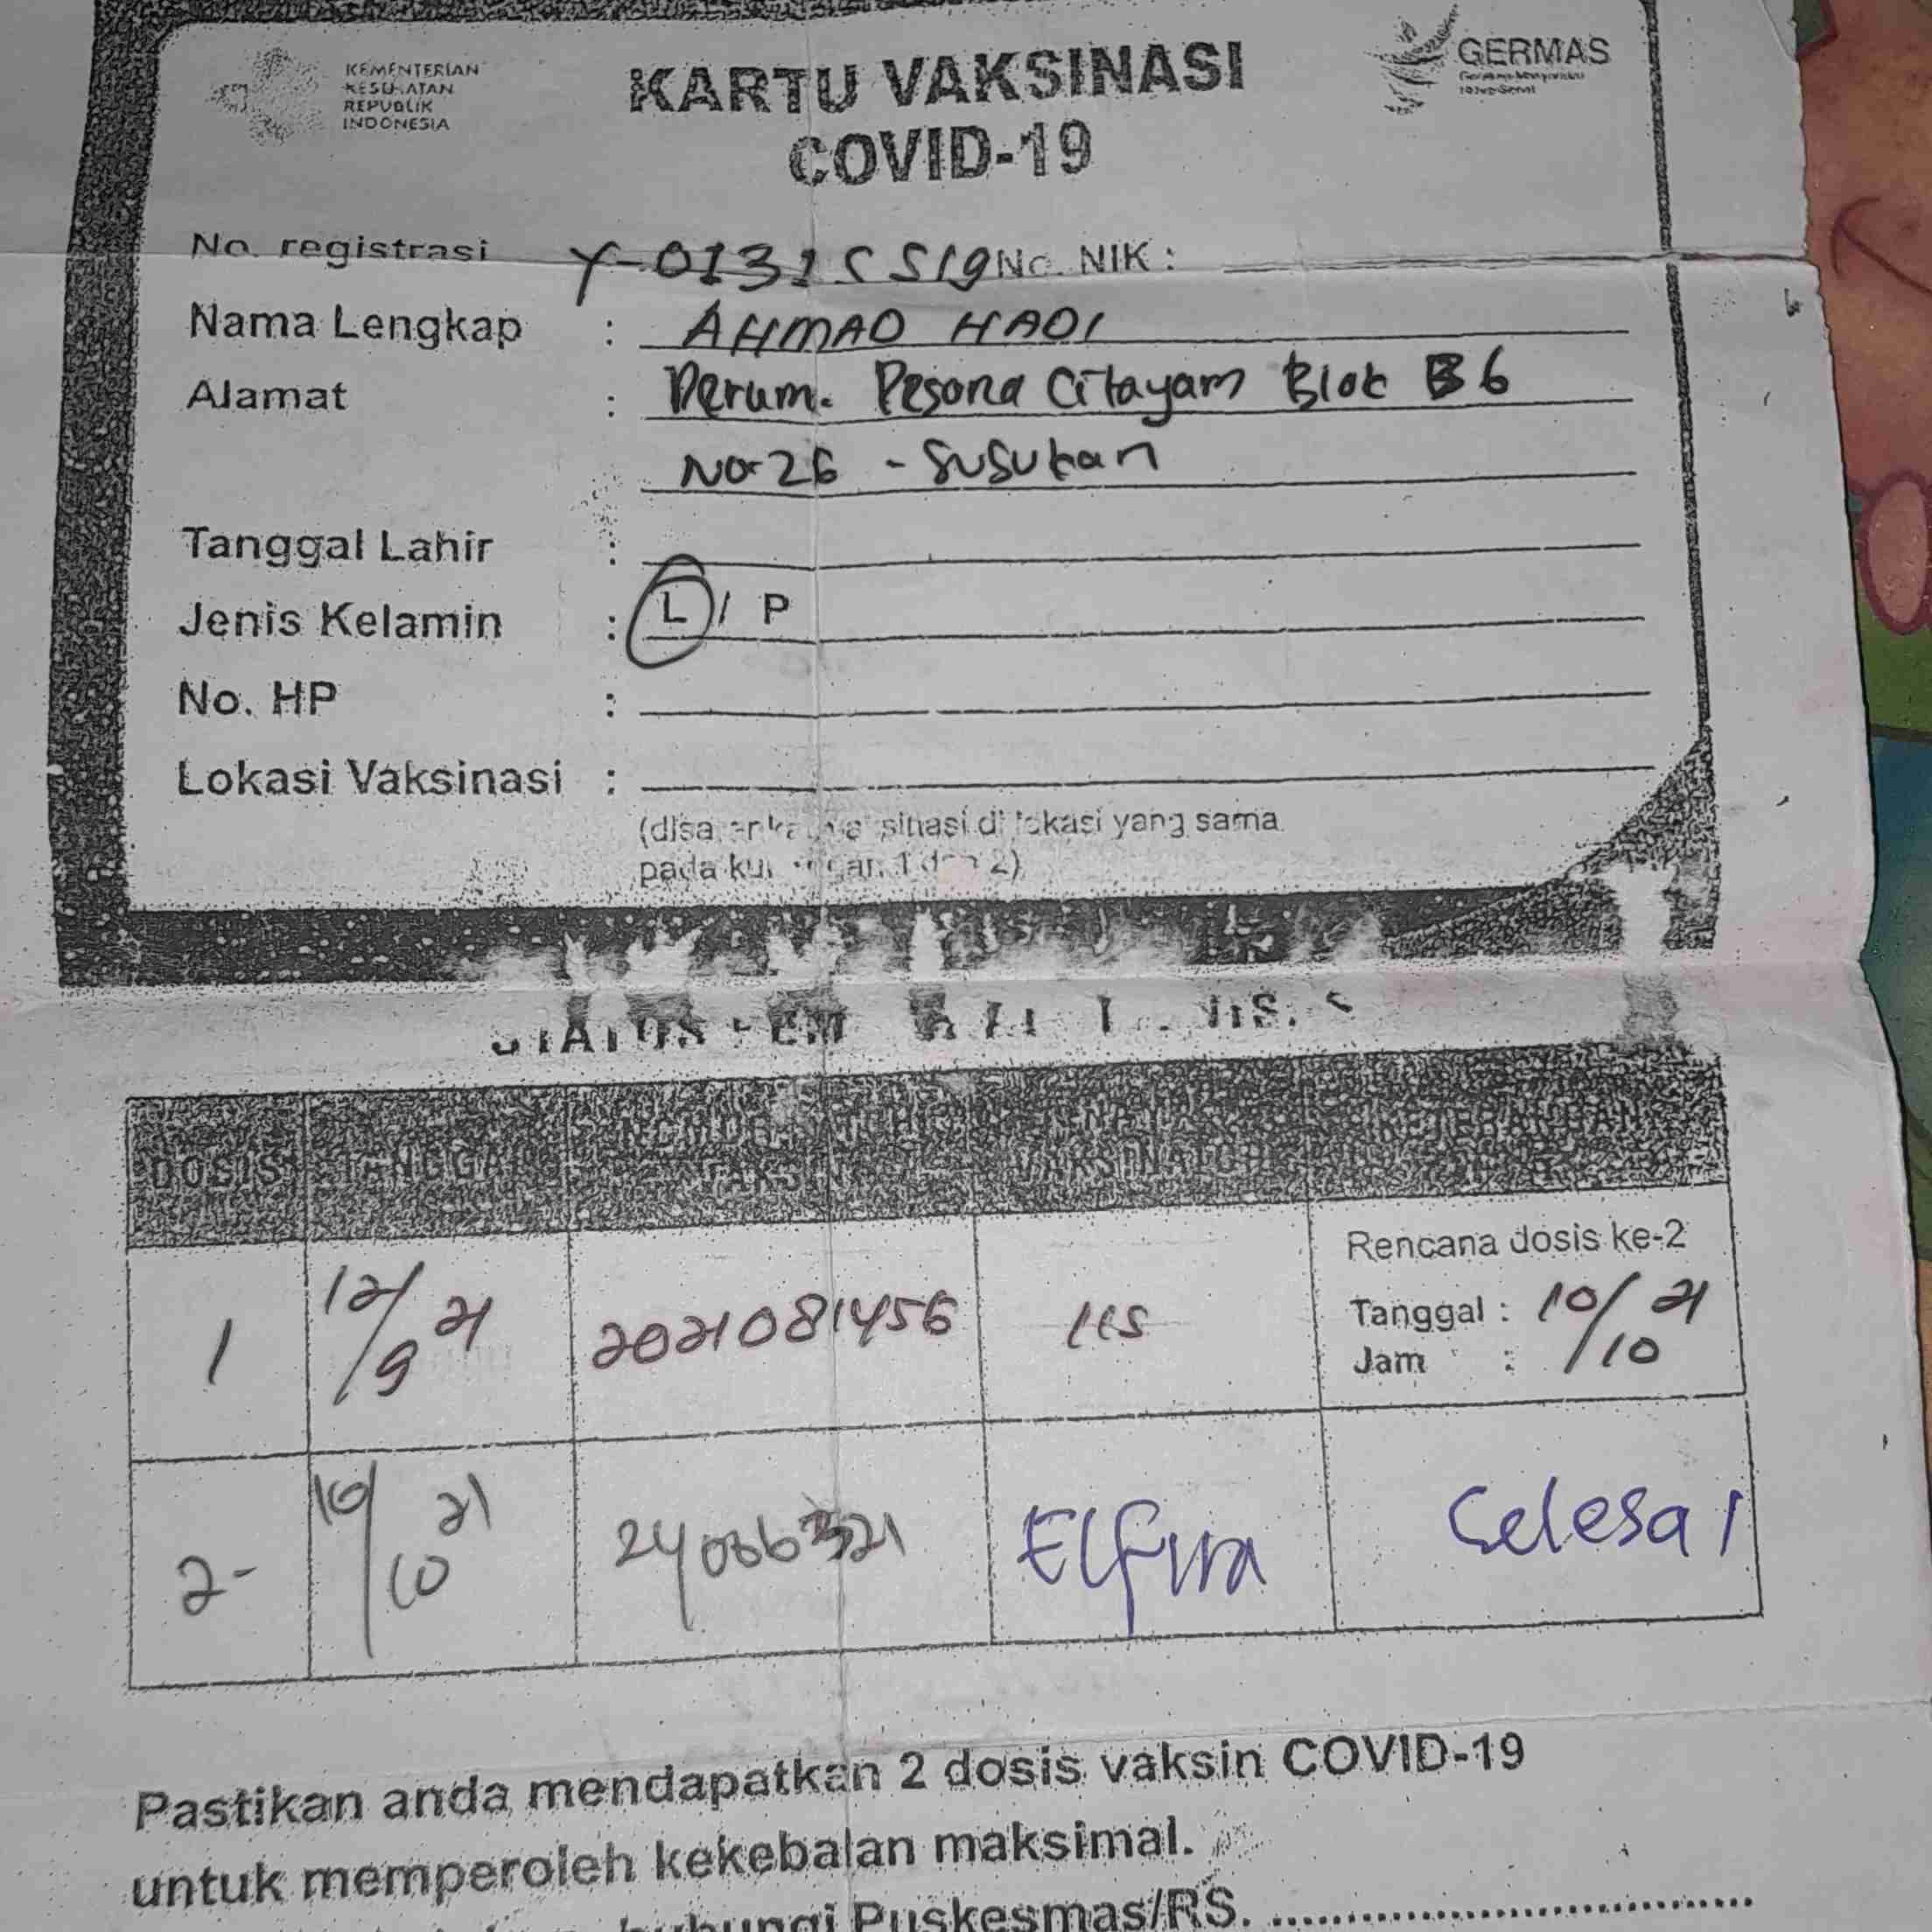 KEMENTERIAN
KESEHATAN
REPUBLIK
INDONESIA
KARTU VAKSINASI
COVID-19
GERMAS
No. registrasi Y-01315519 No. NIK :
Nama Lengkap : AHMAD HADI
Alamat : Perum. Pesona Citayam Blok B6
No 26 - Susukan
Tanggal Lahir :
Jenis Kelamin : L / P
No. HP :
Lokasi Vaksinasi :
sinasi di lokasi yang sama
pada 1 dan 2)
STATUS
DOSIS TANGGAL VAKSIN VAKSINATOR KETERANGAN
1 12/9 21 2021081456 Rencana dosis ke-2
Tanggal : 10/10 21
Jam :
2- 10/10 21 Elfira Selesai
Pastikan anda mendapatkan 2 dosis vaksin COVID-19
untuk memperoleh kekebalan maksimal.
Puskesmas/RS. ........................................